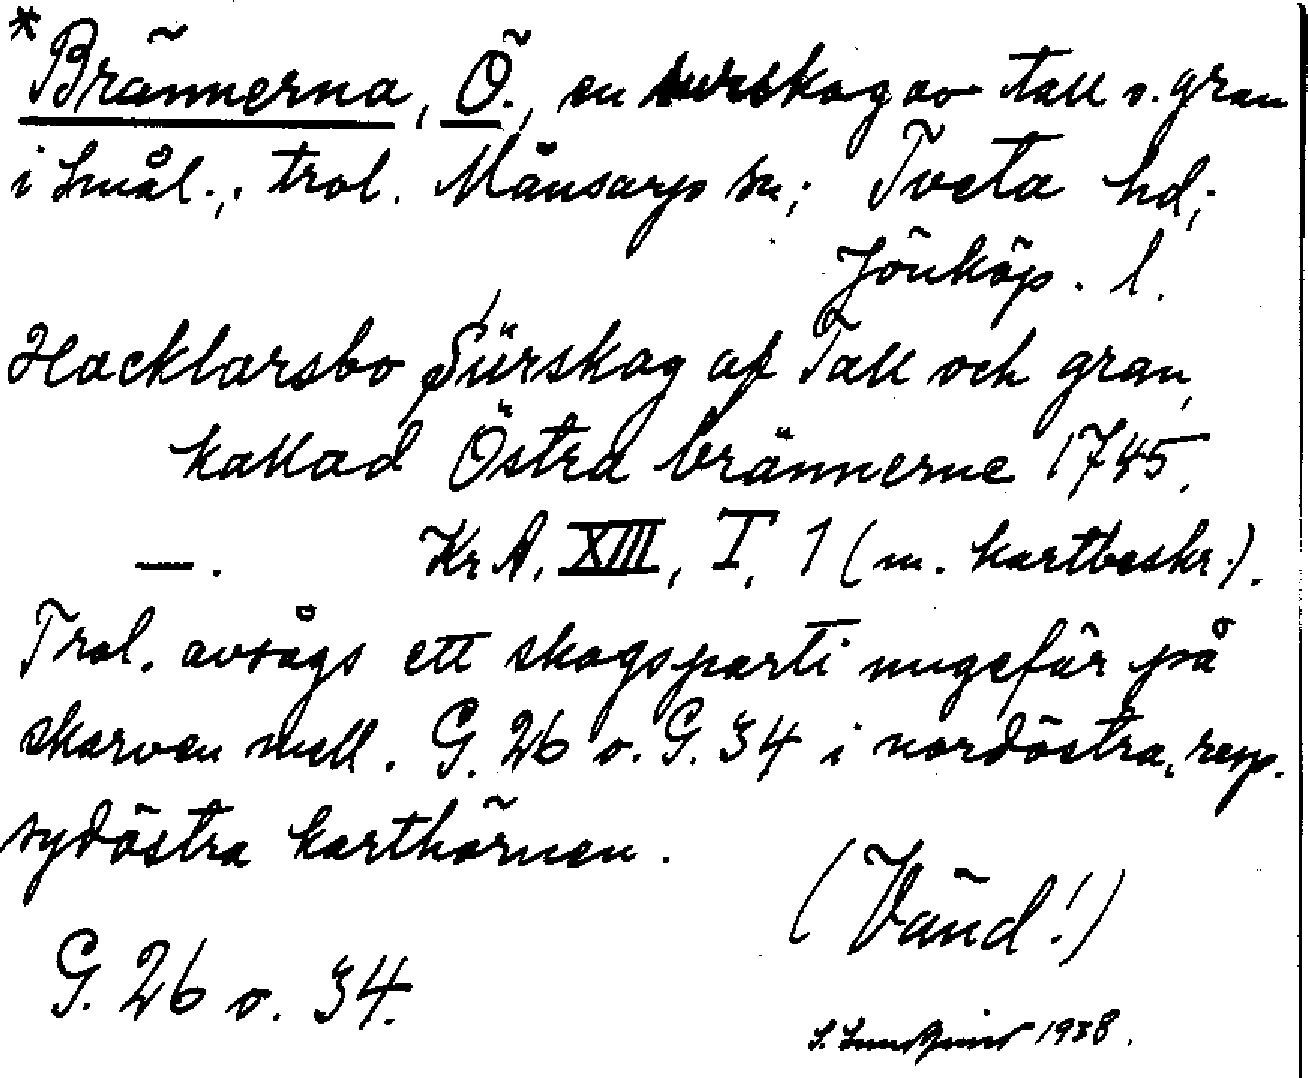 *Brännerna, Ö., en surskog av tall o. gran
i Smål., trol. Månsarps sn; Tveta hd;
Jönköp. l.
Hacklarsbo Sürskog af Tall och gran,
kallad Östra brännerne 1745.
—. Kr A. XIII, I, 1 (m. kartbeskr.).
Trol. avsågs ett skogsparti ungefär på
skarven mell. G. 26 o. G. 34 i nordöstra, resp.
sydöstra karthörnen.
(Vänd!)
G. 26 o. 34.
S. Lundqvist 1938.